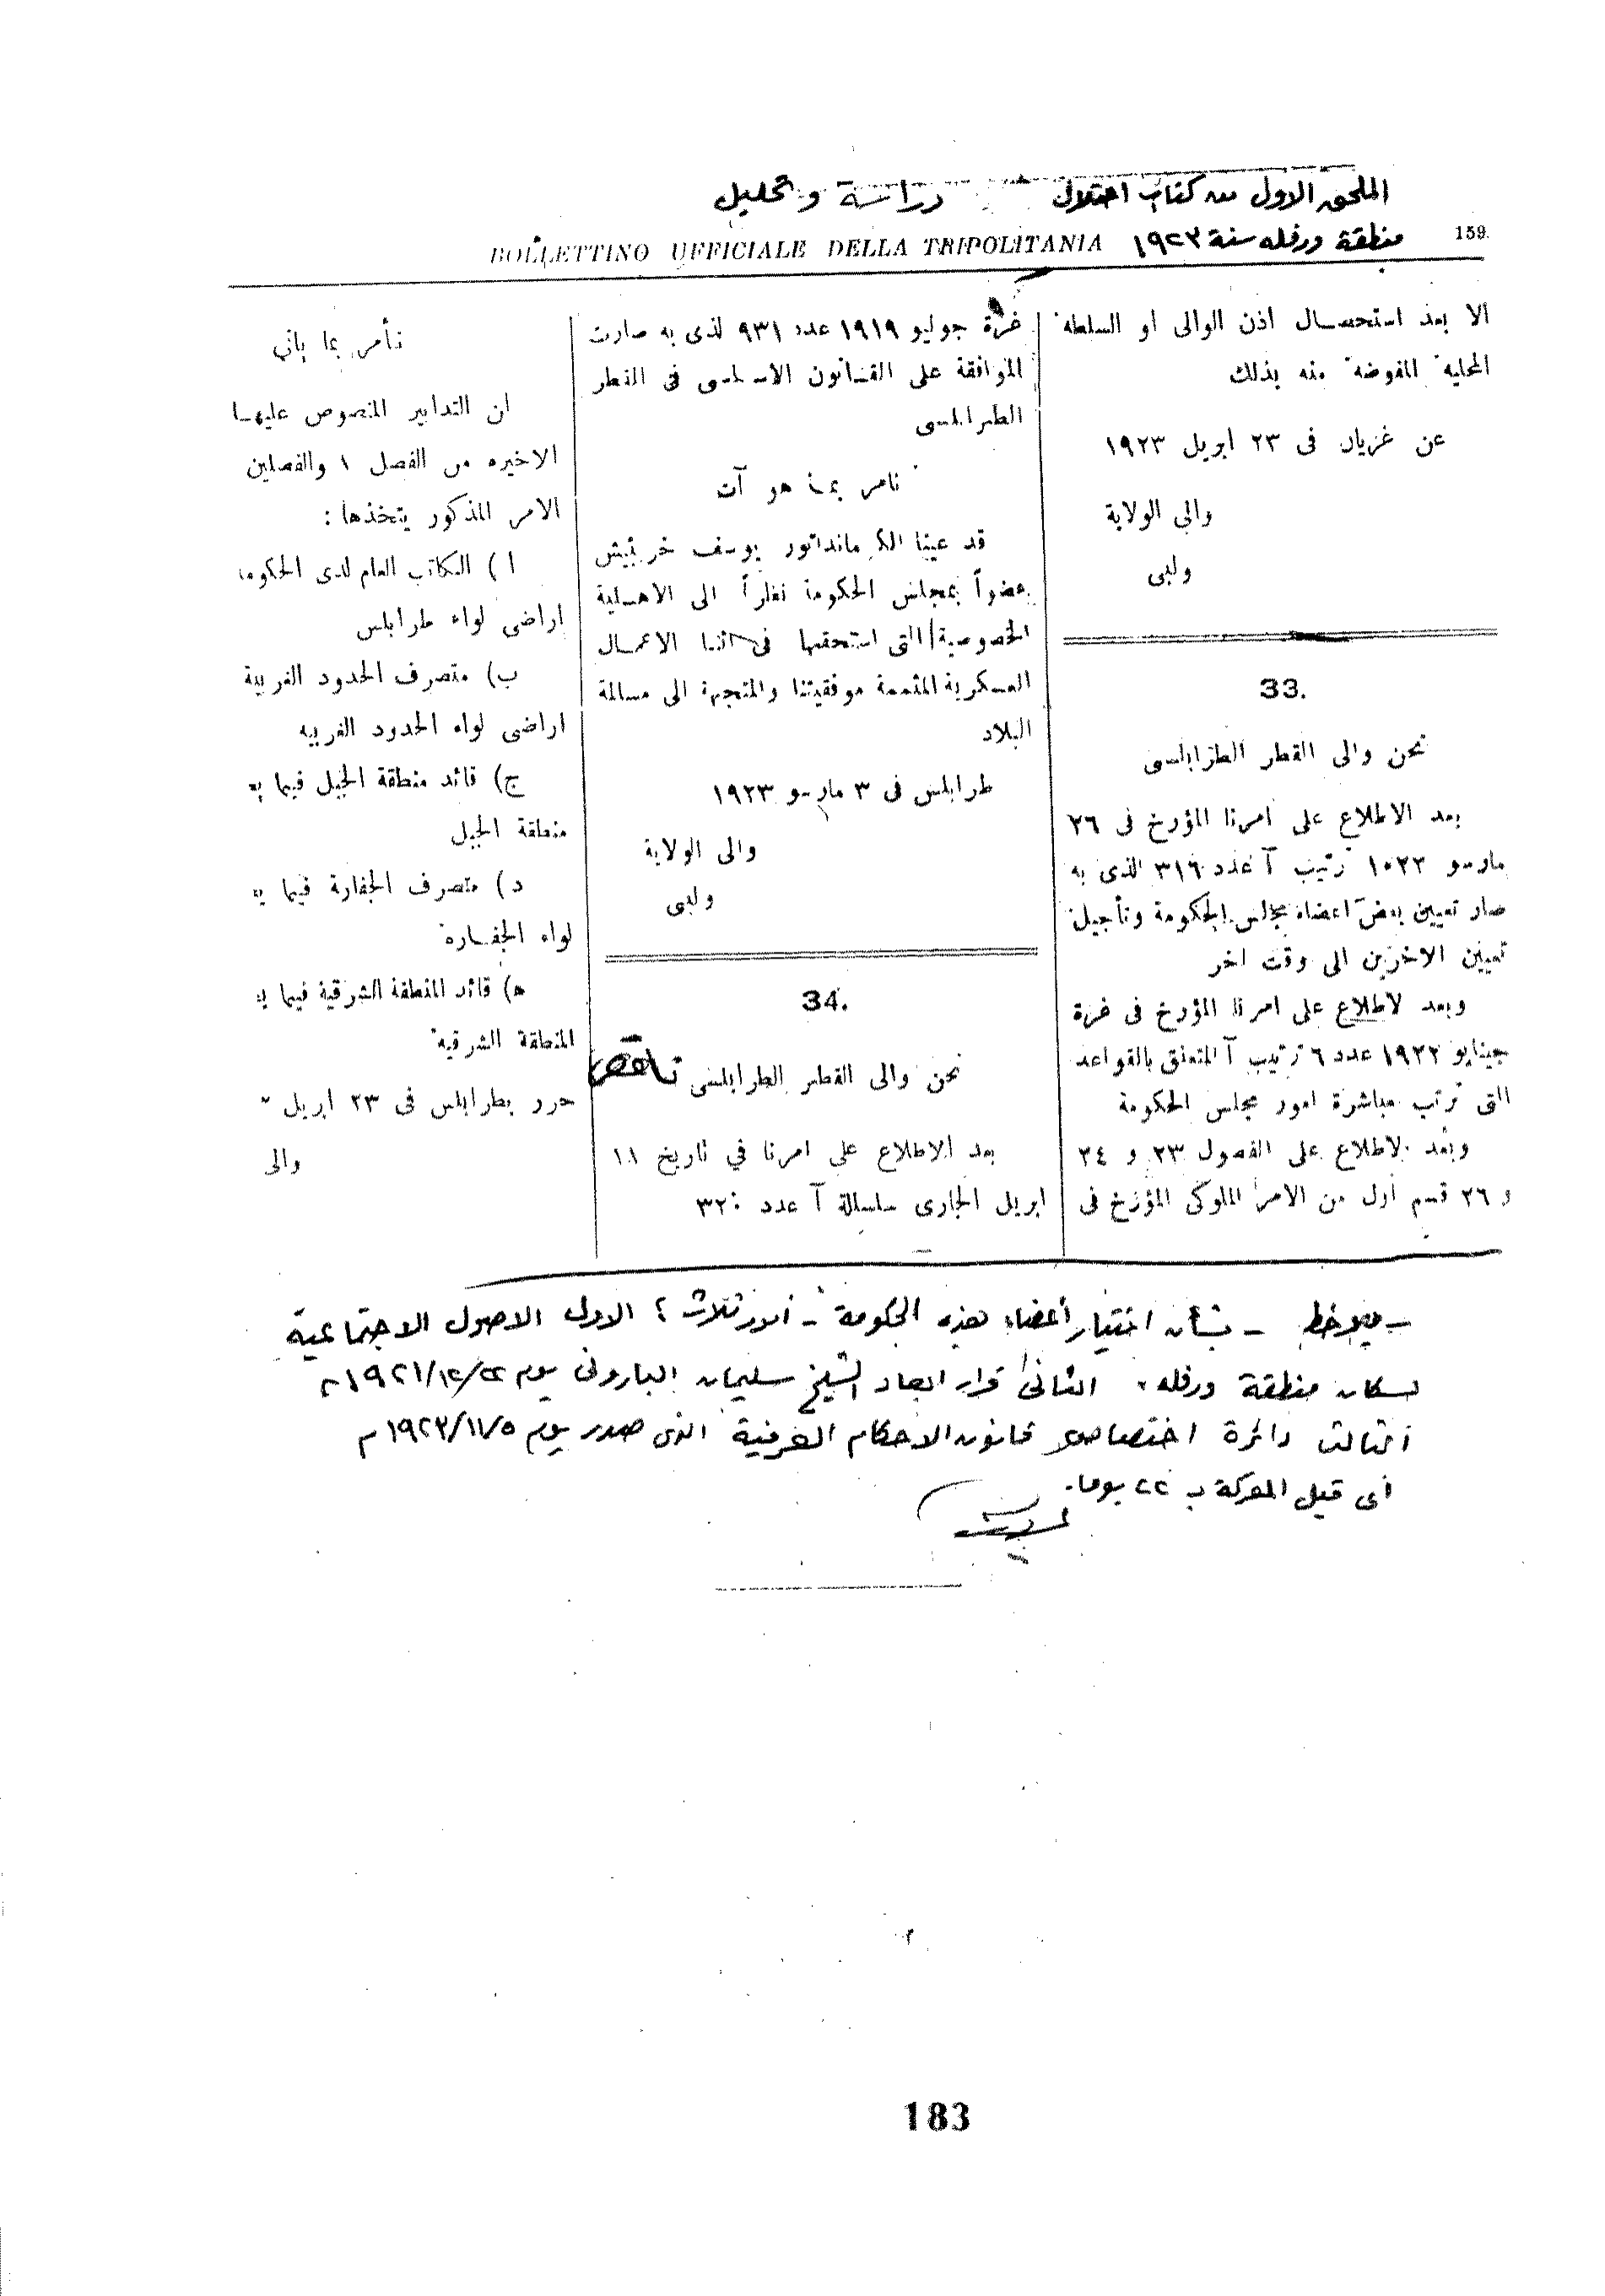 الملحق الاول من كتاب احتلال دراسة وتحليل
منطقة ورفله سنة ١٩٢٣
159.
BOLLETTINO UFFICIALE DELLA TRIPOLITANIA
الا بعد استحصال اذن الوالى او السلطة
المحلية المفوضة منه بذلك
عن غزيان فى ٢٣ ابريل ١٩٢٣
والي الولاية
ولبى
33.
نحن والى القطر الطرابلسى
بعد الاطلاع على امرنا المؤرخ فى ٢٦
مارسو ١٠٢٢ رتيب آ عدد ٣١٦ الذى به
صار تعيين بعض اعضاء مجالس الحكومة وتأجيل
تعيين الاخرين الى وقت اخر
وبعد لاطلاع على امرنا المؤرخ فى غرة
جينايو ١٩٢٢ عدد ٦ ترتيب آ المتعلق بالقواعد
التى ترتب مباشرة امور مجلس الحكومة
وبعد لاطلاع على الفصول ٢٣ و ٢٤
و ٢٦ قسم أول من الامر الملوكى المؤرخ فى
غرة جوليو ١٩١٩ عدد ٩٣١ لذى به صارت
الموافقة على القانون الاساسى فى القطر
الطرابلسى
نامر بما هو آت
قد عينا الكماندانور يوسف خربيش
عضواً بمجلس الحكومة نظراً الى الاهلية
الخصوصية التى استحقها فى اثنا الاعمال
العسكرية المتممة موفقيتنا والمتجهة الى مسالمة
البلاد
طرابلس فى ٣ مارسو ١٩٢٣
والى الولاية
ولبى
34.
نحن والى القطر الطرابلسى ناقص
بعد الاطلاع على امرنا في تاريخ ١٨
ابريل الجارى سلسالة آ عدد ٣٢٠
نأمر بما يأتى
ان التدابير المنصوص عليها
الاخيره من الفصل ١ والفصلين
الامر المذكور يتخذها :
ا ) الكاتب العام لدى الحكومة
اراضى لواء طرابلس
ب) متصرف الحدود الغربية
اراضى لواء الحدود الغربيه
ج) قائد منطقة الجبل فيما
منطقة الجبل
د ) متصرف الجفارة فيما
لواء الجفارة
ه) قائد المنطقة الشرقية فيما
المنطقة الشرقية
حرر بطرابلس فى ٢٣ ابريل
والى
ـ يلاحظ ـ بشأن اختيار أعضاء هذه الحكومة ـ أمور ثلاث ؛ الاول الاصول الاجتماعية
لسكان منطقة ورفله، الثانى قرار ابعاد الشيخ سليمان البارونى يوم ١٩٢١/١٢/٢٢م
الثالث دائرة اختصاص قانون الاحكام العرفية الذى صدر يوم ١٩٢٣/١١/٥م
أى قبل المعركة ب ٢٢ يوما.
183